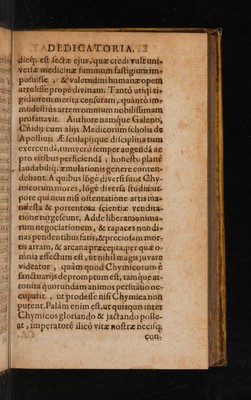 DEDICATORIA.
dieq; est sectæ ejus, quæ credi vult uni-
versæ medicinæ summum fastigium im-
posuisse, & valetudini humanæ opem
attulisse prope divinam. Tantò utiq; ti-
gidiorem merita censuram, quantò im-
modestiùs artem omnium nobilissimam
profanavit. Authore namque Galeno,
Cnidij cum alijs Medicorum scholis de
Apollinis Æsculapijque disciplina tum
exercenda, tum verò semper augendâ ac
pro viribus perficiendâ, honestè planè
laudabiliq; æmulationis genere conten-
debant. A quibus lõgè diversi sunt Chy-
micorum mores, lõgè diversa studia: ut-
pote qui non nisi ostentatione artis ma-
nifesta & portentosa scientiæ vendita-
tione turgescunt. Adde liberam anima-
rum negociationem, & rapaces nundi-
nas pendentibus fatis, & preciosam mor-
tis arram, & arcana præcepta, per quæ o-
mnia effectum est, ut nihil magis juvaro
videatur, quàm quod Chymicorum è
sanctuarijs depromptum est, tamque at-
tonita quorundam animos persuasio oc-
cupavit, ut prodesse nisi Chymica non
putent. Palàm enim est, ut quisquis inter
Chymicos gloriando & jactando polle-
at, imperatorẽ ilicò vitæ nostræ necisq;
con-